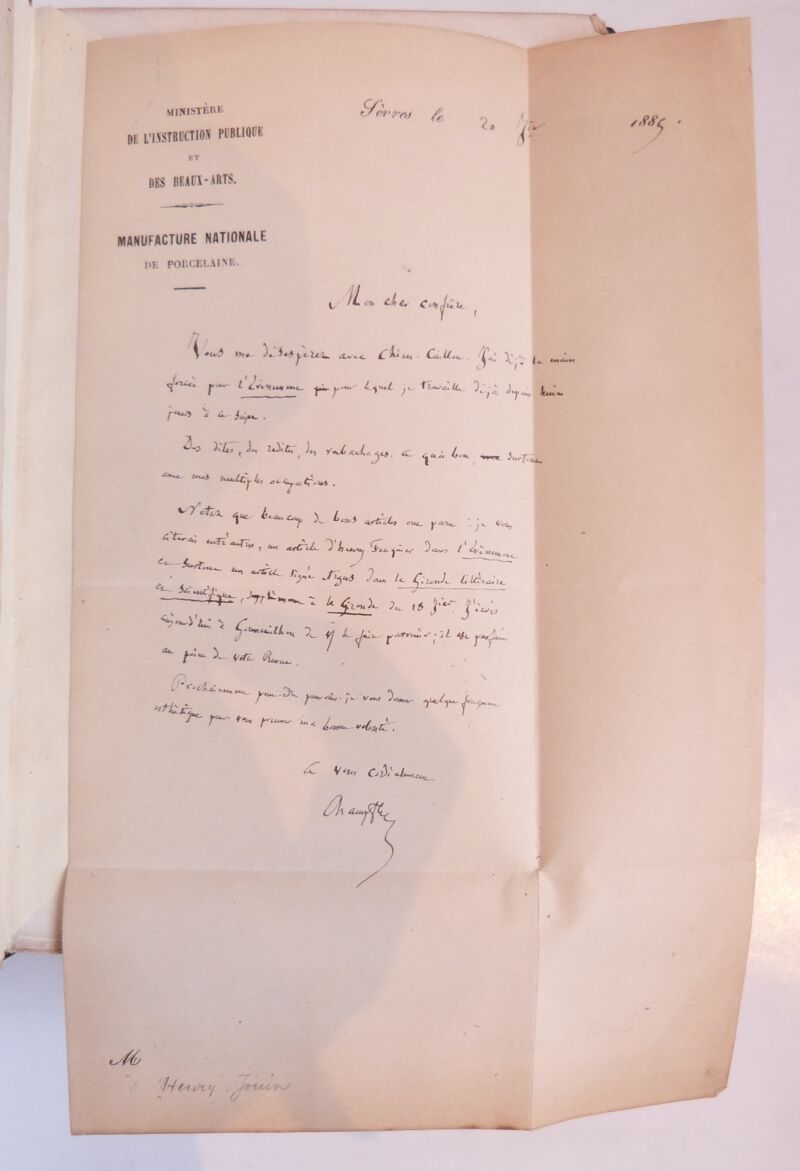 MINISTÈRE
DE L'INSTRUCTION PUBLIQUE
ET
DES BEAUX-ARTS.
MANUFACTURE NATIONALE
DE PORCELAINE.
Sèvres le 20 1885.
Mon cher confrère,
Vous me désespérez avec Chien-Caillou. J'ai déjà la main
forcée par l'Évènement pour lequel je travaille déjà depuis
jours à ce sujet.
Des dites, des redites, des rabachages. à quoi bon, surtout
avec mes multiples occupations.
Notez que beaucoup de bons articles ont paru : je vous
citerai entr'autres, un article d'Henry Fouquier dans l'Évènement
et surtout un article signé Argus dans la Gironde littéraire
et Scientifique, supplément à la Gironde du 18 J'écris
aujourd'hui à Gounouilhou de le faire parvenir ; il est parfait
au point de vote Revue.
Prochainement peut-être pourrai-je vous donner quelque fragment
esthétique pour vous prouver ma bonne volonté.
à vous cordialement
Champfleury
M
à Henry Jouin